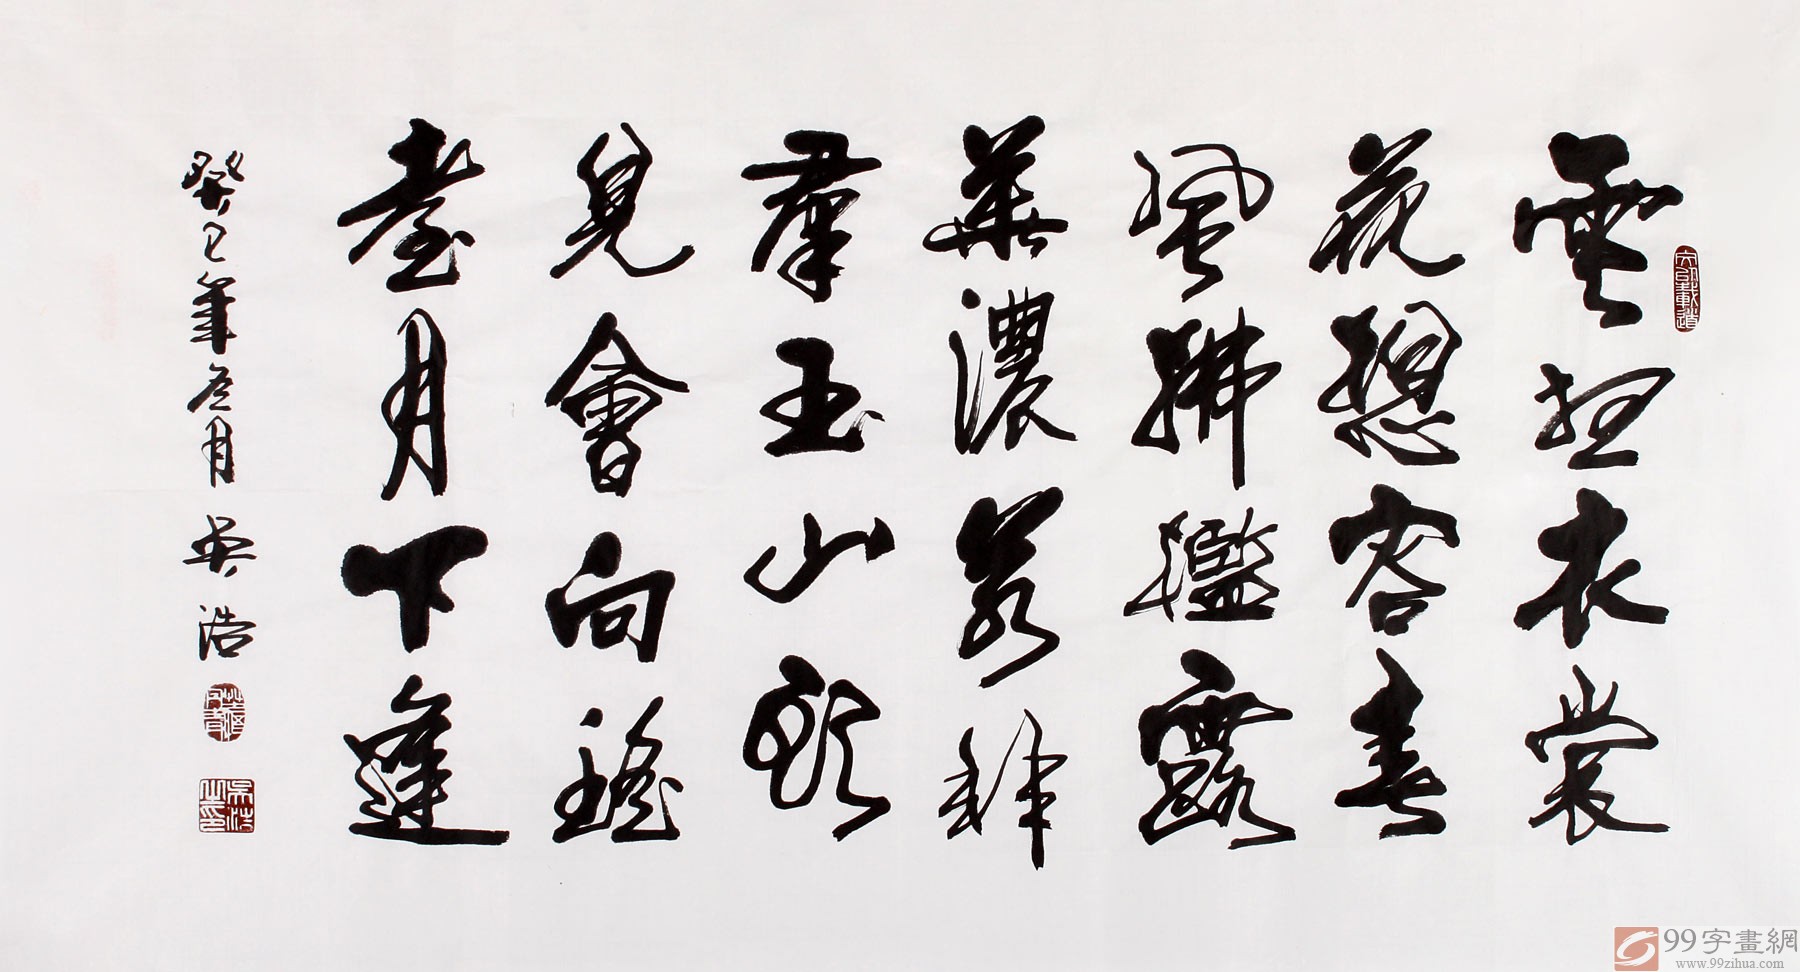 雲想衣裳
花想容春
風拂檻露
華濃若非
羣玉山頭
見會向瑤
臺月下逢
癸巳年月 吴浩
文以載道
吳浩之印
99字畫網
www.99zihua.com